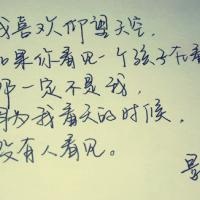 我喜欢仰望天空,
如果你看见一个孩子在看
那一定不是我,
因为我看天的时候,
没有人看见。